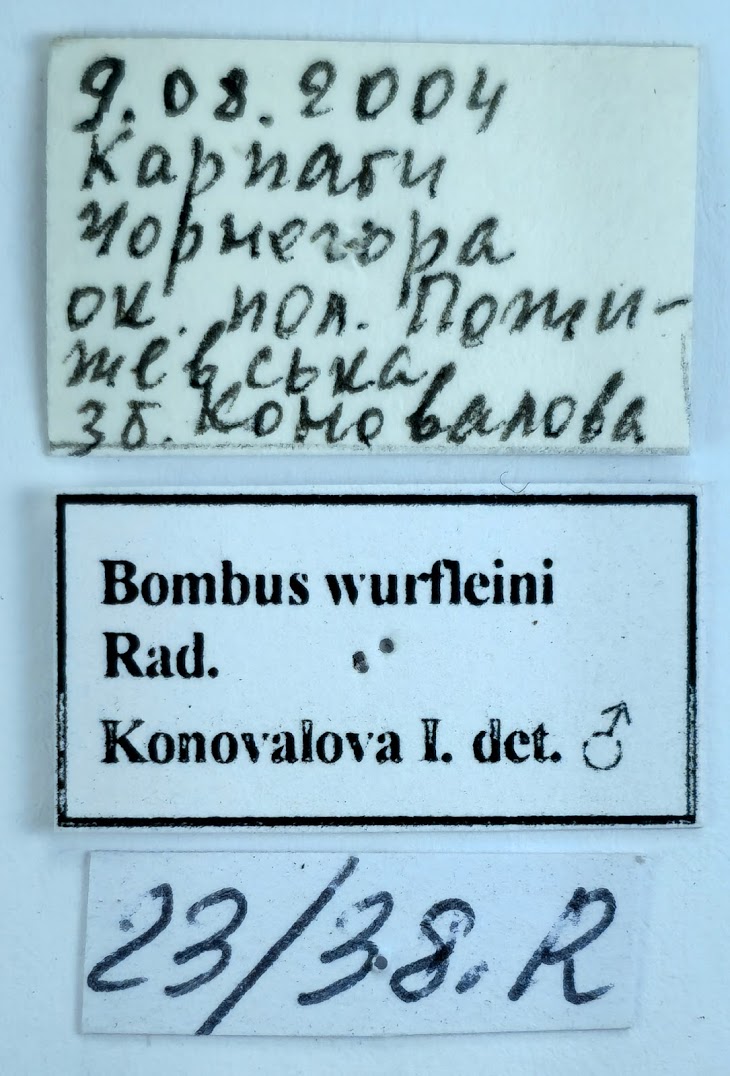 9.08.2004
Карпати
Чорногора
ок. пол. Пожи-
жевська
зб. Коновалова
Bombus wurfleini
Rad.
Konovalova I. det. ♂
23/38. R